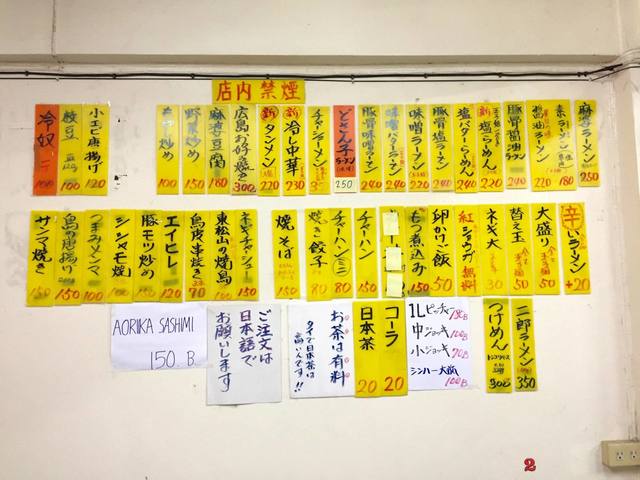 店内 禁煙
冷奴
枝豆 100
小エビ唐揚げ 120
100
野菜炒め 150
麻婆豆腐 180
広島お好み焼き 300
新 タンメン 220
新 冷し中華 230
チャーシューメン
どさん子ラーメン 250
豚骨味噌ラーメン 240
味噌バターラーメン 240
味噌ラーメン 220
塩バターらーめん 240
新 塩らーめん 220
豚骨醤油ラーメン 240
醤油ラーメン 220
素ラーメン 180
麻婆ラーメン 250
サンマ焼き 150
鳥の唐揚げ 150
つまみメンマ 100
シシャモ焼 100
豚モツ炒め 150
エイヒレ 120
鳥皮串焼き 70
東松山の焼鳥 100
ネギチャーシュー 150
焼そば 150
焼き餃子 80
チャーハン ミニ 80
チャーハン 150
もつ煮込み 150
卵かけご飯 50
紅ショウガ 無料
ネギ大 30
替え玉 50
大盛り 50
辛いラーメン +20
AORIIKA SASHIMI
150 B
ご注文は
日本語で
お願いします
お茶は有料
タイで日本茶は
高いんです!!
日本茶 20
コーラ 20
1Lピッチャー 180B
中ジョッキ 100B
小ジョッキ 70B
シンハー大瓶 100B
つけめん 300
二郎ラーメン 350
2